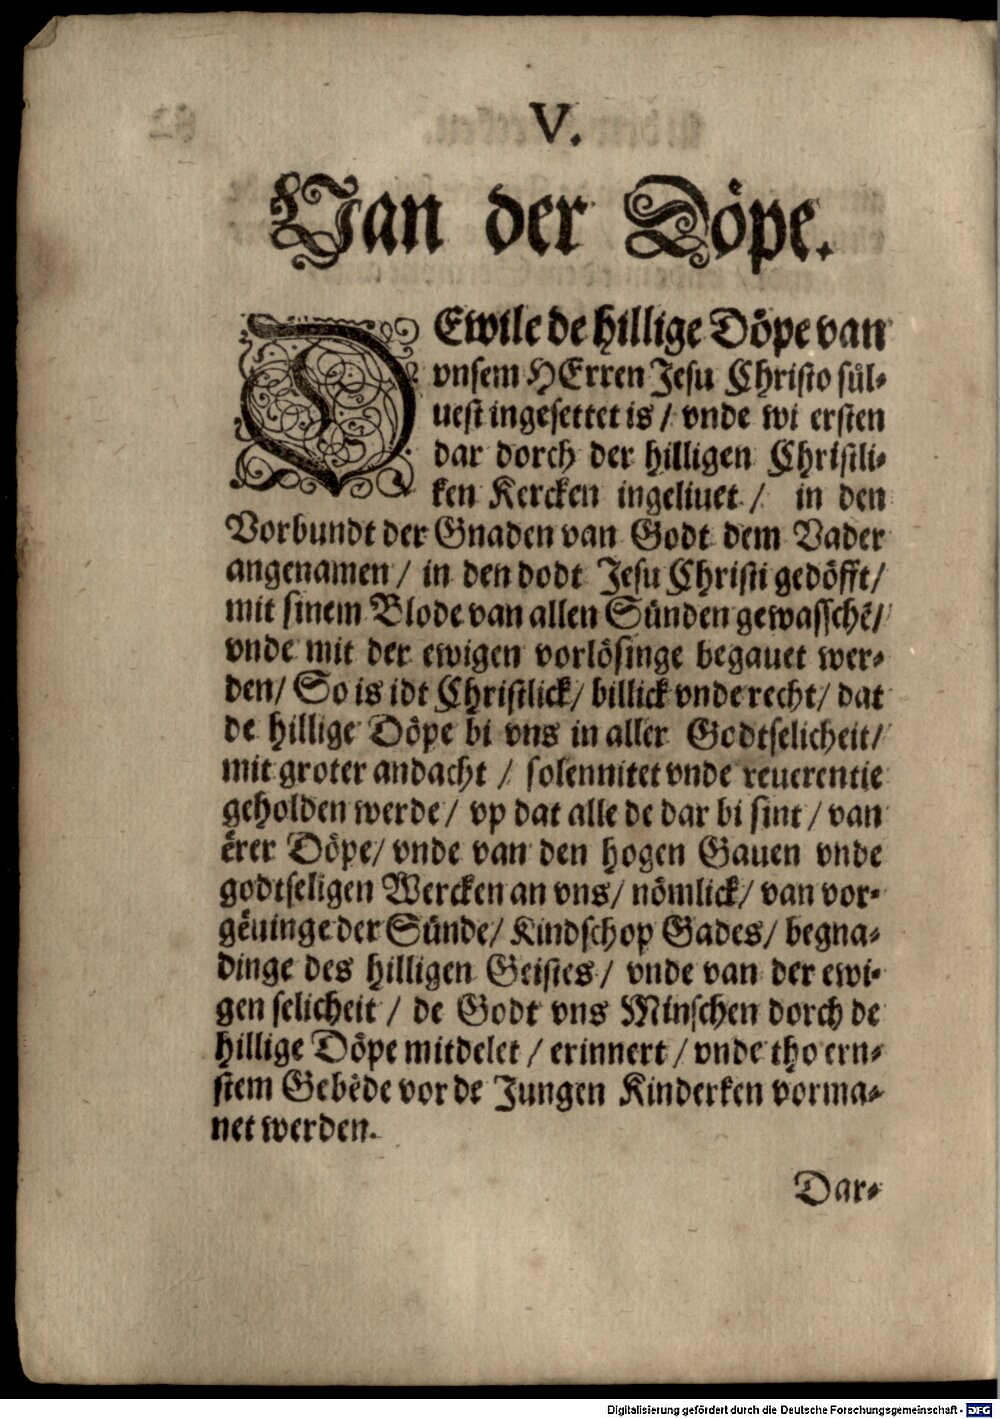 V.
Van der Döpe.
DEwile de hillige Döpe van
vnsem HErren Jesu Christo sül-
uest ingesettet is / vnde wi ersten
dar dorch der hilligen Christli-
ken Kercken ingeliuet / in den
Vorbundt der Gnaden van Godt dem Vader
angenamen / in den dodt Jesu Christi gedöfft /
mit sinem Blode van allen Sünden gewasschē /
vnde mit der ewigen vorlösinge begauet wer-
den / So is idt Christlick / billick vnde recht / dat
de hillige Döpe bi vns in aller Godtselicheit /
mit groter andacht / solennitet vnde reuerentie
geholden werde / vp dat alle de dar bi sint / van
ērer Döpe / vnde van den hogen Gauen vnde
godtseligen Wercken an vns / nömlick / van vor-
gēuinge der Sünde / Kindschop Gades / begna-
dinge des hilligen Geistes / vnde van der ewi-
gen selicheit / de Godt vns Minschen dorch de
hillige Döpe mitdelet / erinnert / vnde tho ern-
stem Gebēde vor de Jungen Kinderken vorma-
net werden.
Dar-
Digitalisierung gefördert durch die Deutsche Forschungsgemeinschaft - DFG